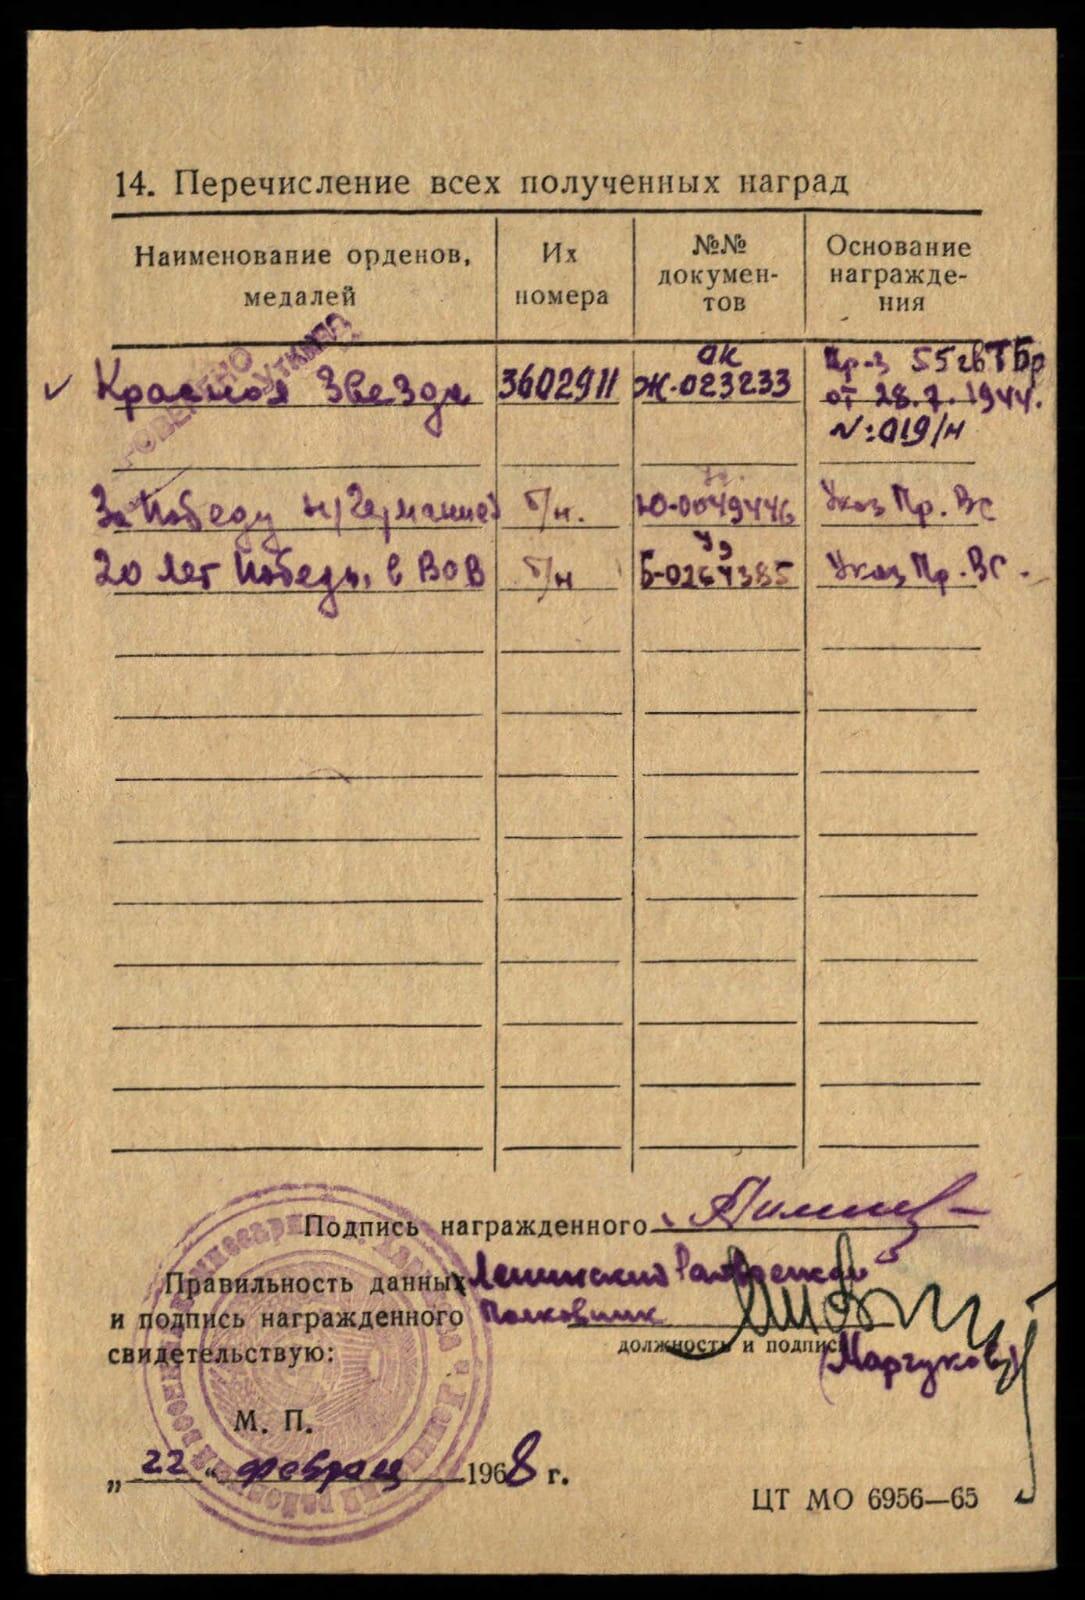 14. Перечисление всех полученных наград
Наименование орденов, медалей
Их номера
№№ докумен-
тов
Основание
награжде-
ния
Красная Звезда 3602911 ак Ж-023233 Пр-з 55гвТБр
от 28.7.1944.
№:019/н
За Победу н/Германией б/н. Ю-0049446 Указ Пр. ВС
20 лет Победы в ВОВ б/н Б-0264385 Указ Пр. ВС.
Подпись награжденного
Правильность данных Ленинский
и подпись награжденного Полковник
должность и подпись
свидетельствую:
М. П.
„22“ февраля 1968 г.
ЦТ МО 6956—65